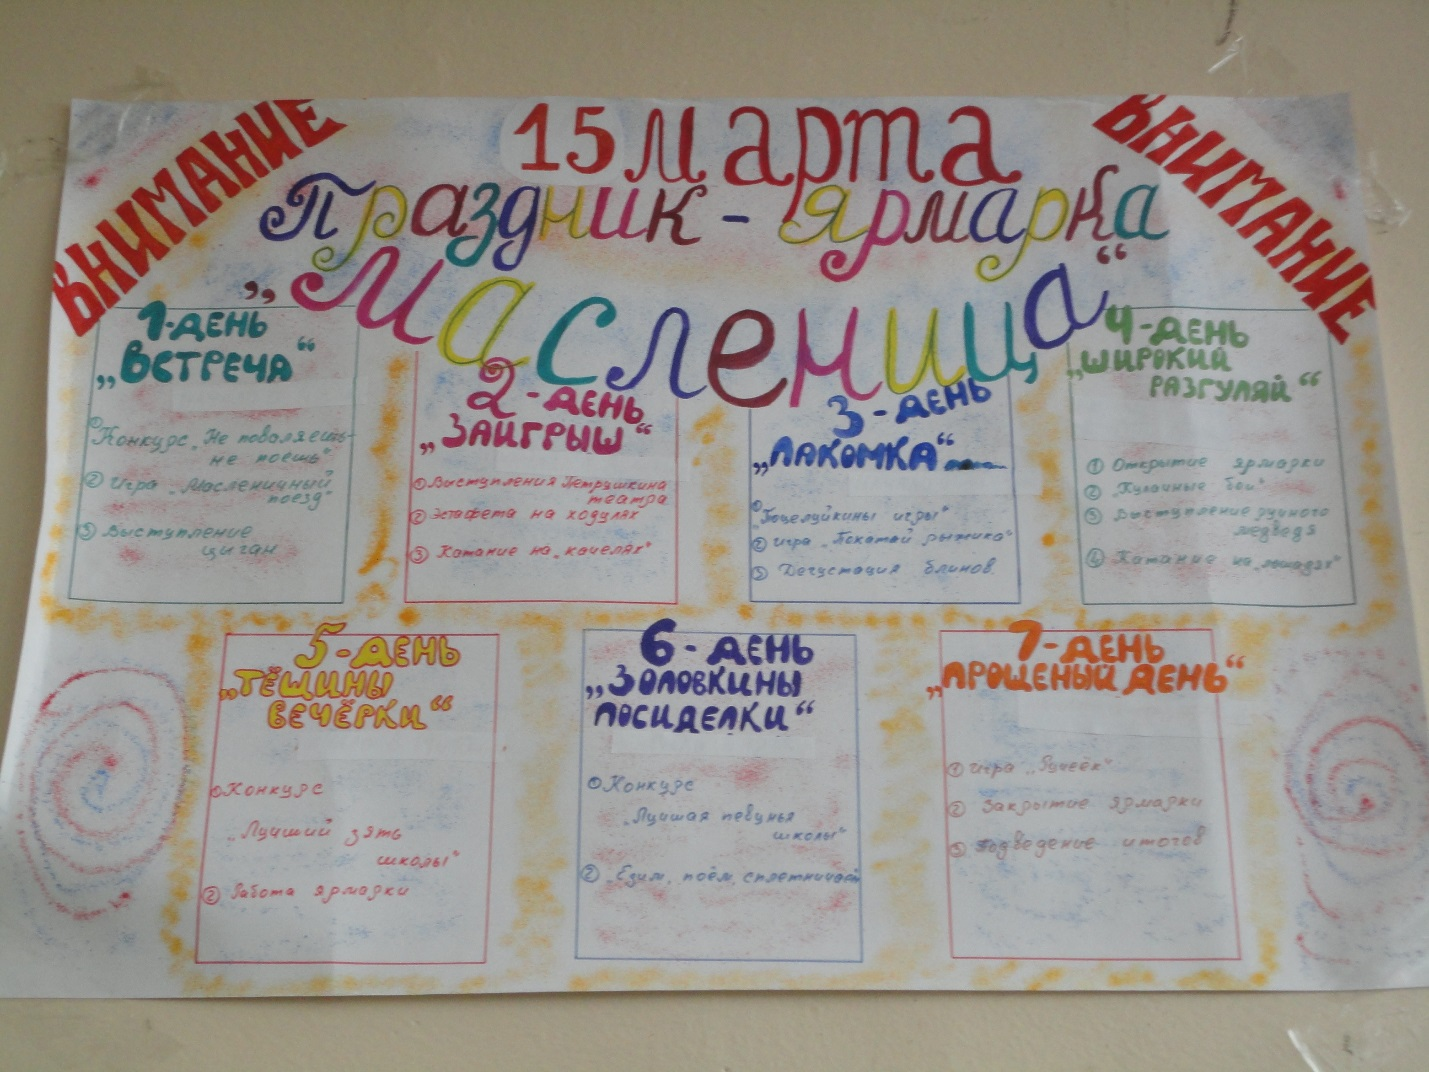 ВНИМАНИЕ
ВНИМАНИЕ
15 марта
Праздник - ярмарка
„Масленица“
1-ДЕНЬ
„ВСТРЕЧА“
① Конкурс „Не поваляешь-
не поешь“
② Игра „Масленичный
поезд“
③ Выступление
цыган
2-ДЕНЬ
„ЗАИГРЫШ“
① Выступления Петрушкина
театра
② Эстафета на ходулях
③ Катание на „качелях“
3-ДЕНЬ
„ЛАКОМКА“
①
„Поцелуйкины игры“
② Игра „Покатай рыжика“
③ Дегустация блинов.
4-ДЕНЬ
„ШИРОКИЙ
РАЗГУЛЯЙ“
① Открытие ярмарки
② „Кулачные бои“
③ Выступление ручного
медведя
④ Катание на „лошадях“
5-ДЕНЬ
„ТЁЩИНЫ
ВЕЧЁРКИ“
① Конкурс
„Лучший зять
школы“
② Работа ярмарки
6-ДЕНЬ
„ЗОЛОВКИНЫ
ПОСИДЕЛКИ“
① Конкурс
„Лучшая певунья
школы“
② „Едим, поём, сплетничаем
7-ДЕНЬ
„ПРОЩЕНЫЙ ДЕНЬ“
① Игра „Ручеёк“
② Закрытие ярмарки
③ Подведение итогов